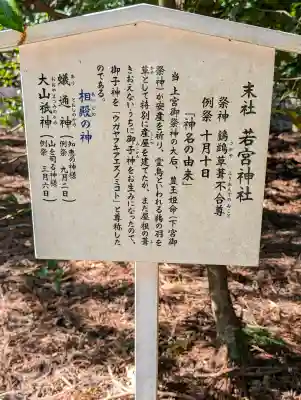 末社 若宮神社
祭神 鸕鶿草葺不合尊
うがや ふきあえずのみこと
例祭 十月十日
「神名の由来」
当 上宮御祭神の大后、豊玉姫命（下宮御
祭神）が安産を祈り、霊鳥といわれる鵜の羽を
葺として特別に産屋を建てたが、まだ屋根の葺
きおえないうちに御子神をお生みになったので、
御子神を（ウガヤフキアエズノミコト）と尊称した
のである。
相殿の神
蟻通神 知恵の神様
例祭 九月二日
大山祇神 山を司る神様
例祭 三月六日